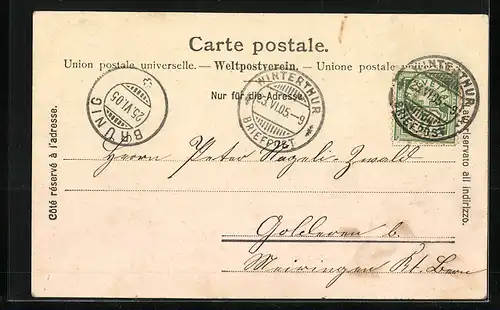 Carte postale.
Union postale universelle. — Weltpostverein. — Unione postale
Nur für die Adresse
Côté réservé à l'adresse.
riservato all indirizzo.
BRÜNIG
25.VI.05
WINTERTHUR
23.VI.05-9
BRIEFPOST
WINTERTHUR
23.VI.05-9
BRIEFPOST
Herrn Peter Nägeli-Zwald
Goldern b
Meiringen Kt. Bern